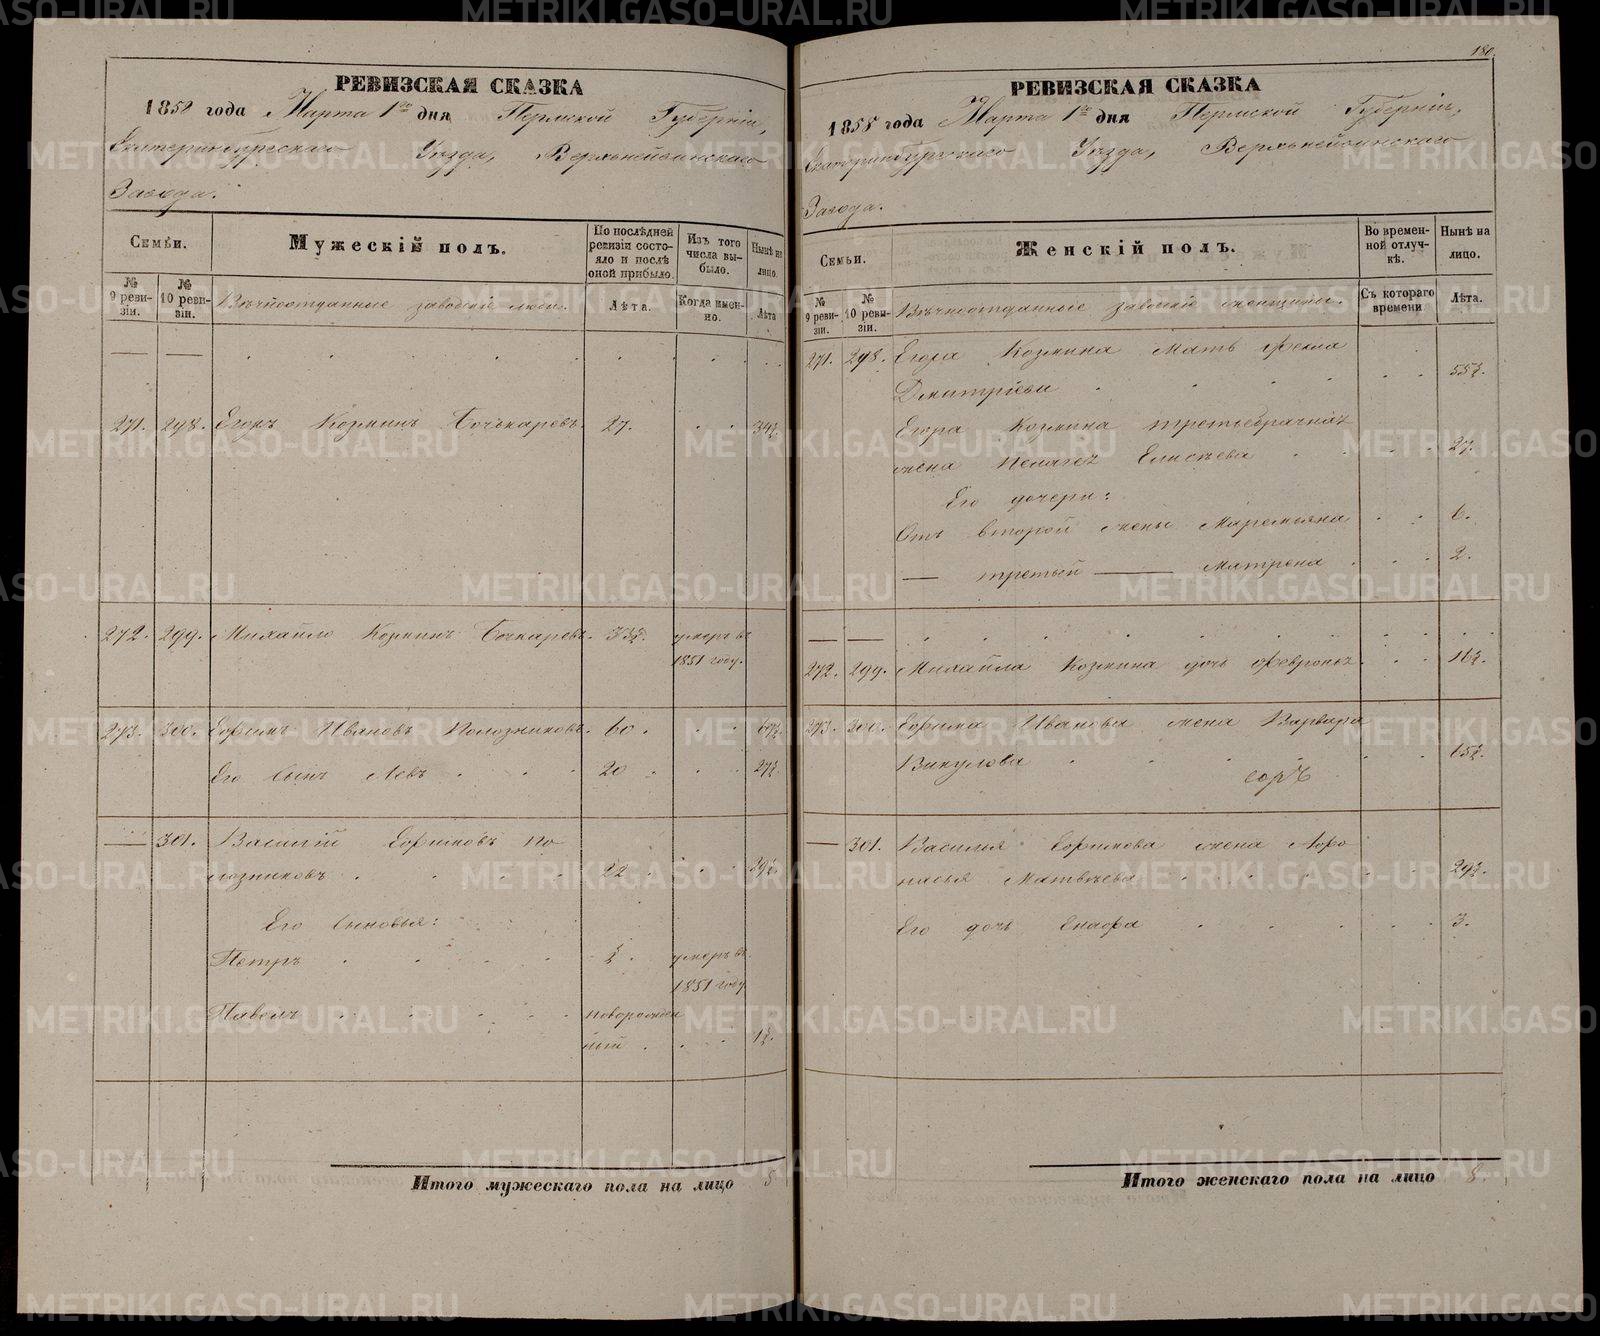 РЕВИЗСКАЯ СКАЗКА
1858 года Марта 1го дня Пермской Губерніи,
Екатеринбургскаго Уѣзда, Верхънейвинскаго
Завода.
Семьи.
Мужескій полъ.
По послѣдней ревизіи состояло и послѣ оной прибыло.
Изъ того числа выбыло.
Нынѣ на лицо.
№ 9 ревизіи.
№ 10 ревизіи.
Вѣчноотданные заводскіе люди.
Лѣта.
Когда именно.
Лѣта
271. 298. Егоръ Козминъ Бочькаревъ. 27. 34½
272. 299. Михайло Козминъ Бочкаревъ. 33½. умеръ въ
1851 году.
273. 300. Ефимъ Ивановъ Полозниковъ. 60. 67½
Его сынъ Левъ 20 27½
301. Василій Ефимовъ По
лозниковъ 22 29½
Его сыновья:
Петръ ½ умеръ въ
1851 году
Павелъ новорожден
ный 1½
Итого мужескаго пола на лицо 5
180.
РЕВИЗСКАЯ СКАЗКА
1858 года Марта 1го дня Пермской Губерніи,
Екатеринбургскаго Уѣзда, Верхънейвинскаго
Завода.
Семьи.
Женскій полъ.
Во временной отлучкѣ.
Нынѣ на лицо.
№ 9 ревизіи.
№ 10 ревизіи.
Вѣчноотданные заводскіе женщины.
Съ котораго времени
Лѣта.
271. 298. Егора Козмина мать Фекла
Дмитріева 55½.
Егора Козмина третьебрачная
жена Пелагея Елисѣева 27.
Его дочери:
Отъ второй жены Маремьяна 6.
— третьей — Матрена 2.
272. 299. Михайла Козмина дочь Февронья 16½.
273. 300. Ефима Иванова жена Варвара
Викулова 65½.
301. Василья Ефимова жена Афо
насья Матвѣева 29½.
Его дочь Енафа 3.
Итого женскаго пола на лицо 8.
METRIKI.GASO-URAL.RU